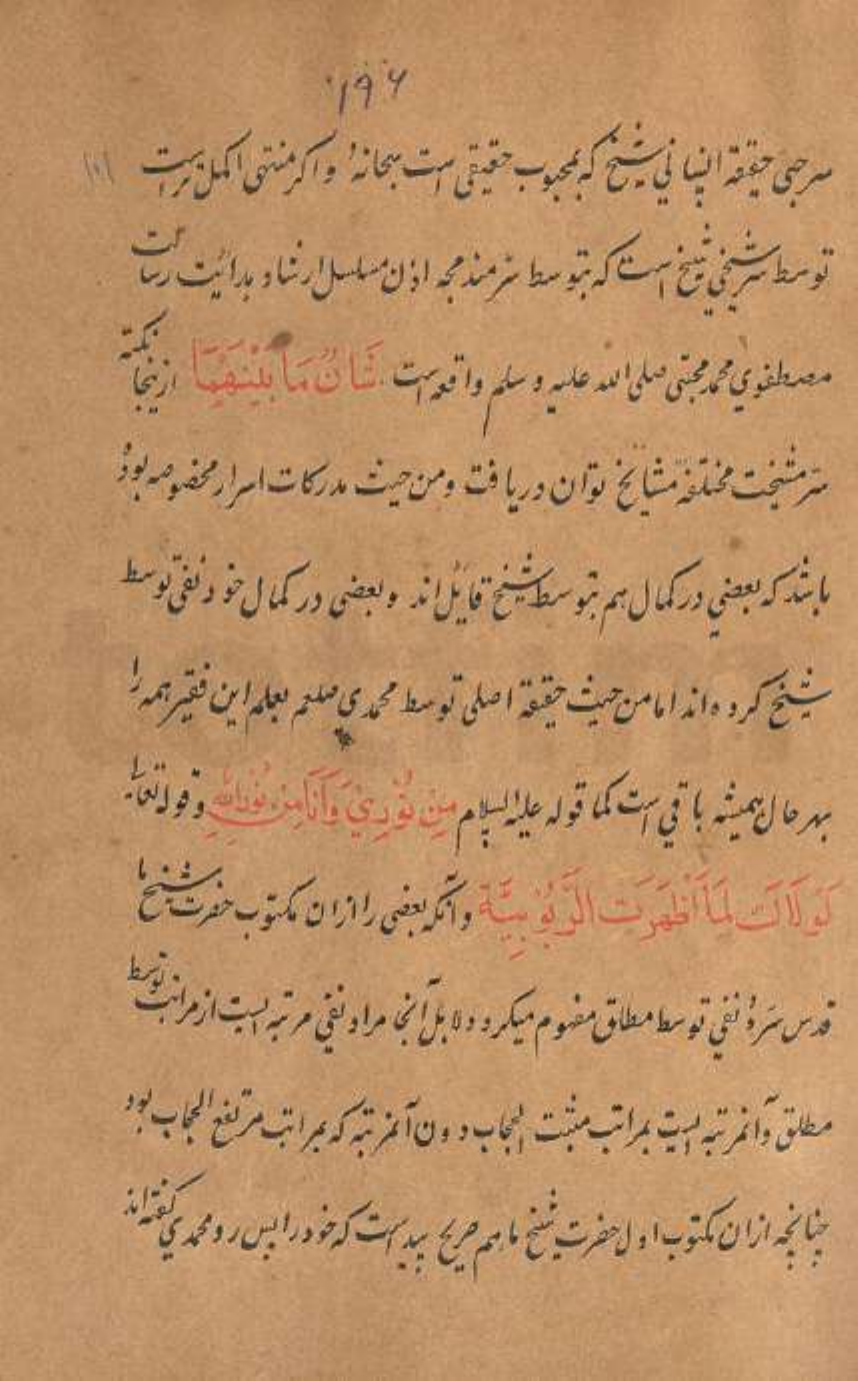 ۱۹۶
حقیقة انسانی شیخ که محبوب حقیقی است سبحانهٗ و اگر منتهی اکمل تر است
توسط شیخ است که بتوسط اذن مسلسل ارشاد رسالت
مصطفوی محمد مجتبی صلی الله علیه و سلم واقعه است شَتَّانَ مَا بَیْنَهُمَا ازینجا نکته
سرّ مشیخت مختلفهٔ مشایخ توان دریافت ومن حیث مدرکات اسرار مخصوصه بودهٔ
باشد که بعضی در کمال هم بتوسط شیخ قایل اند و بعضی در کمال خود نفی توسط
شیخ کرده اند اما من حیث حقیقة اصلی توسط محمدی صلعم بعلم این فقیر همه را
بهر حال همیشه باقی است کما قوله علیه السلام مِنْ نُّوْرِیْ وَاَنَا مِنْ نُّوْرِاللهِ وقوله تعالی
لَوْلَاكَ لَمَا اَظْهَرَتُ الرَّبُوْبِیَّةَ وآنکه بعضی را از ان مکتوب حضرت شیخ ما
قدس سَرهٗ نفی توسط مطلق مفهوم میکردد لا بل آنجا مراد نفی مرتبه ایست از مراتب توسط
مطلق وآنمرتبه ایست بمراتب مثبت الحجاب دون آنمرتبه که بمراتب مرتفع الحجاب بود
چنانچه ازان مکتوب اول حضرت شیخ ما هم صریح پیداست که خود را پس رو محمدی گفته اند